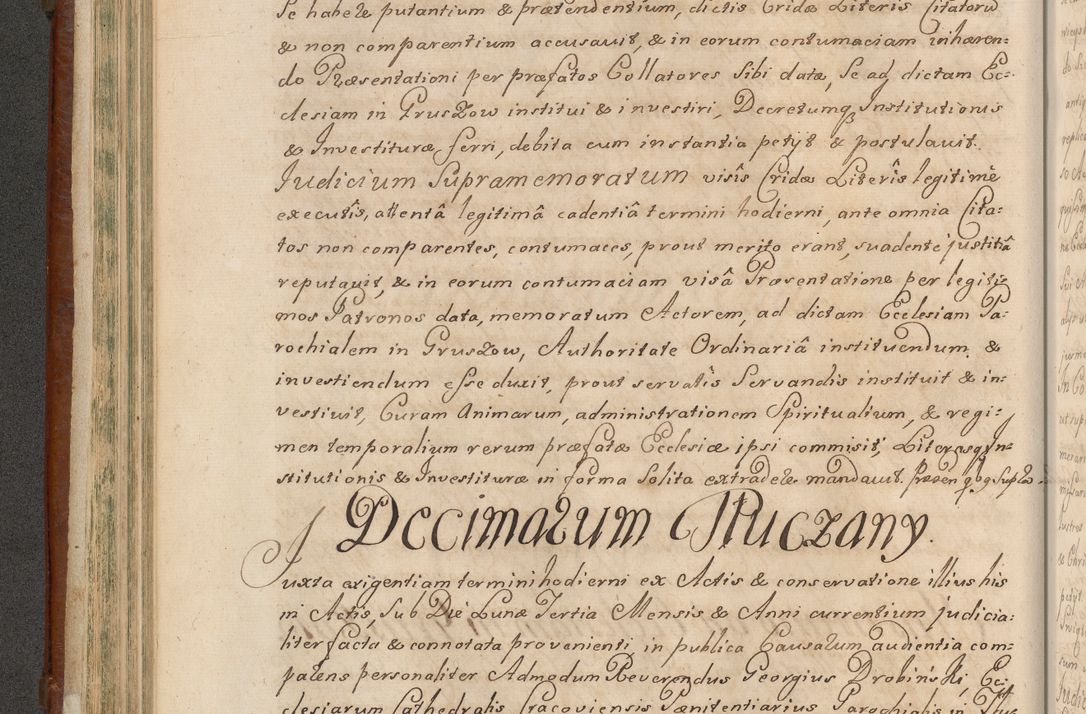 Se habere putantium & prætendentium, dictis Cridæ Literis Citatorũ
& non comparentium accusavit, & in eorum contumaciam inhæren:
do Præsentationi per præfatos Collatores Sibi datæ, Se ad dictam Ec:
clesiam in Gruszow institui & investiri, Decretumq3 Institutionis
& Investituræ ferri, debita cum instantia petijt & postulavit.
Judicium Supramemoratum visîs Cridæ Literîs legitimè
executîs, attentâ legitimâ cadentiâ termini hodierni, ante omnia Cita:
tos non comparentes, contumaces, prout merito erant, suadente justitiâ
reputavit, & in eorum contumaciam visâ Præsentatione per legiti:
mos Patronos data, memoratum Actorem, ad dictam Ecclesiam Pa:
rochialem in Gruszow, Authoritate Ordinariâ instituendum, &
investiendum esse duxit, prout servatîs Servandis instituit & in:
vestivit, Curam Animarum, administrationem Spiritualium, & regi:
men temporalium rerum præfatæ Ecclesiæ ipsi commisit, Literasq3 In:
stitutionis & Investituræ in forma Solita extradere mandavit.
Decimarum Tłuczany.
Juxta exigentiam termini hodierni ex Actis & conservatione illius his
in Actis, Sub Die Lunæ Tertia Mensis & Anni currentium judicia:
liter facta & connotata provenienti, in publica Causarum audientia com:
parens personaliter Admodum Reverendus Georgius Drobiński, Ec:
clesiarum Cathedralis Cracoviensis Pœnitentiarius Parochialis in